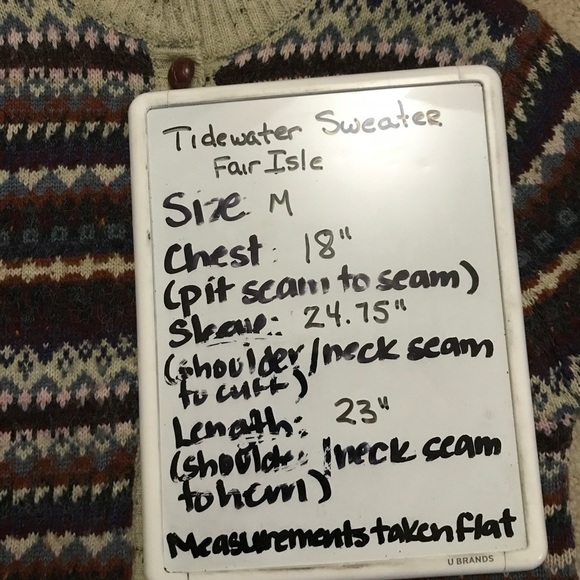 Tidewater Sweater
Fair Isle
Size M
Chest: 18"
(pit seam to seam)
Sleeve: 24.75"
(shoulder/neck seam
to cuff)
Length: 23"
(shoulder/neck seam
to hem)
Measurements taken flat
U BRANDS